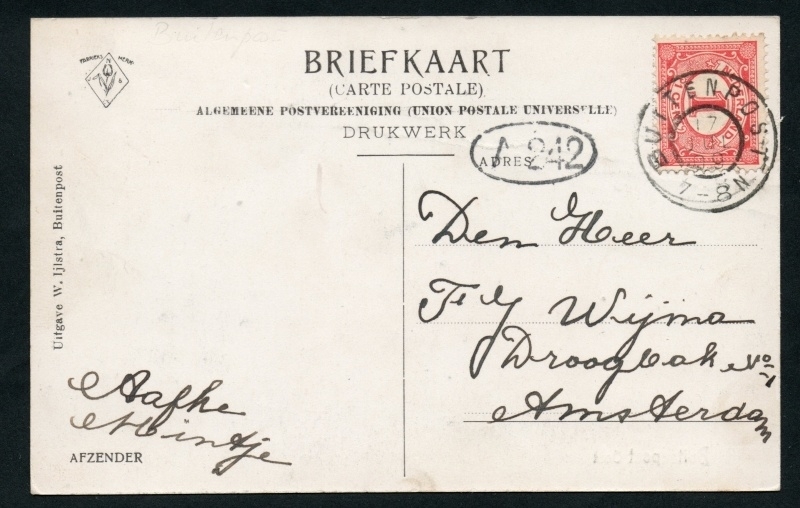 Buitenpost
FABRIEKS MERK
BRIEFKAART
(CARTE POSTALE)
ALGEMEENE POSTVEREENIGING (UNION POSTALE UNIVERSELLE)
DRUKWERK
ADRES
A 242
BUITENPOST
17
7-8N
Den Heer
F Y Wijma
Droogbak No 1
Amsterdam
Uitgave W. Ijlstra, Buitenpost
Aafke
Mintje
AFZENDER